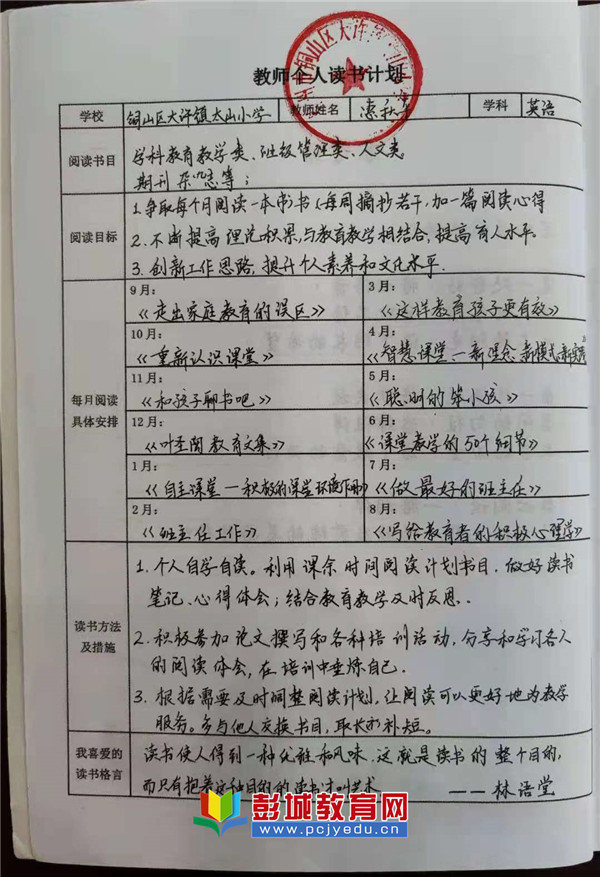 教师个人读书计划
铜山区大许镇太山小学
学校 铜山区大许镇太山小学 教师姓名 惠秋 学科 英语
阅读书目
学科教育教学类、班级管理类、人文类
期刊杂志等；
阅读目标
1.争取每个月阅读一本书(每周摘抄若干,加一篇阅读心得
2.不断提高理论积累,与教育教学相结合,提高育人水平.
3.创新工作思路,提升个人素养和文化水平.
每月阅读
具体安排
9月：
《走出家庭教育的误区》
3月：
《这样教育孩子更有效》
10月：
《重新认识课堂》
4月：
《智慧课堂—新理念、新模式、新实践
11月：
《和孩子聊书吧》
5月：
《聪明的笨小孩》
12月：
《叶圣陶教育文集》
6月：
《课堂教学的50个细节》
1月：
《自主课堂—积极的课堂环境作用》
7月：
《做最好的班主任》
2月：
《班主任工作》
8月：
《写给教育者的积极心理学》
读书方法
及措施
1.个人自学自读。利用课余时间阅读计划书目,做好读书
笔记、心得体会；结合教育教学及时反思.
2.积极参加论文撰写和各科培训活动,分享和学习各人
的阅读体会,在培训中垂炼自己.
3.根据需要及时调整阅读计划,让阅读可以更好地为教学
服务。多与他人交换书目,取长补短。
我喜爱的
读书格言
读书使人得到一种优雅和风味,这就是读书的整个目的,
而只有抱着这种目的的读书才叫艺术.
——林语堂
彭城教育网
www.pcjyedu.cn